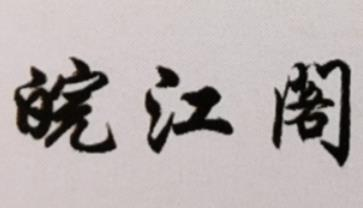 皖江阁